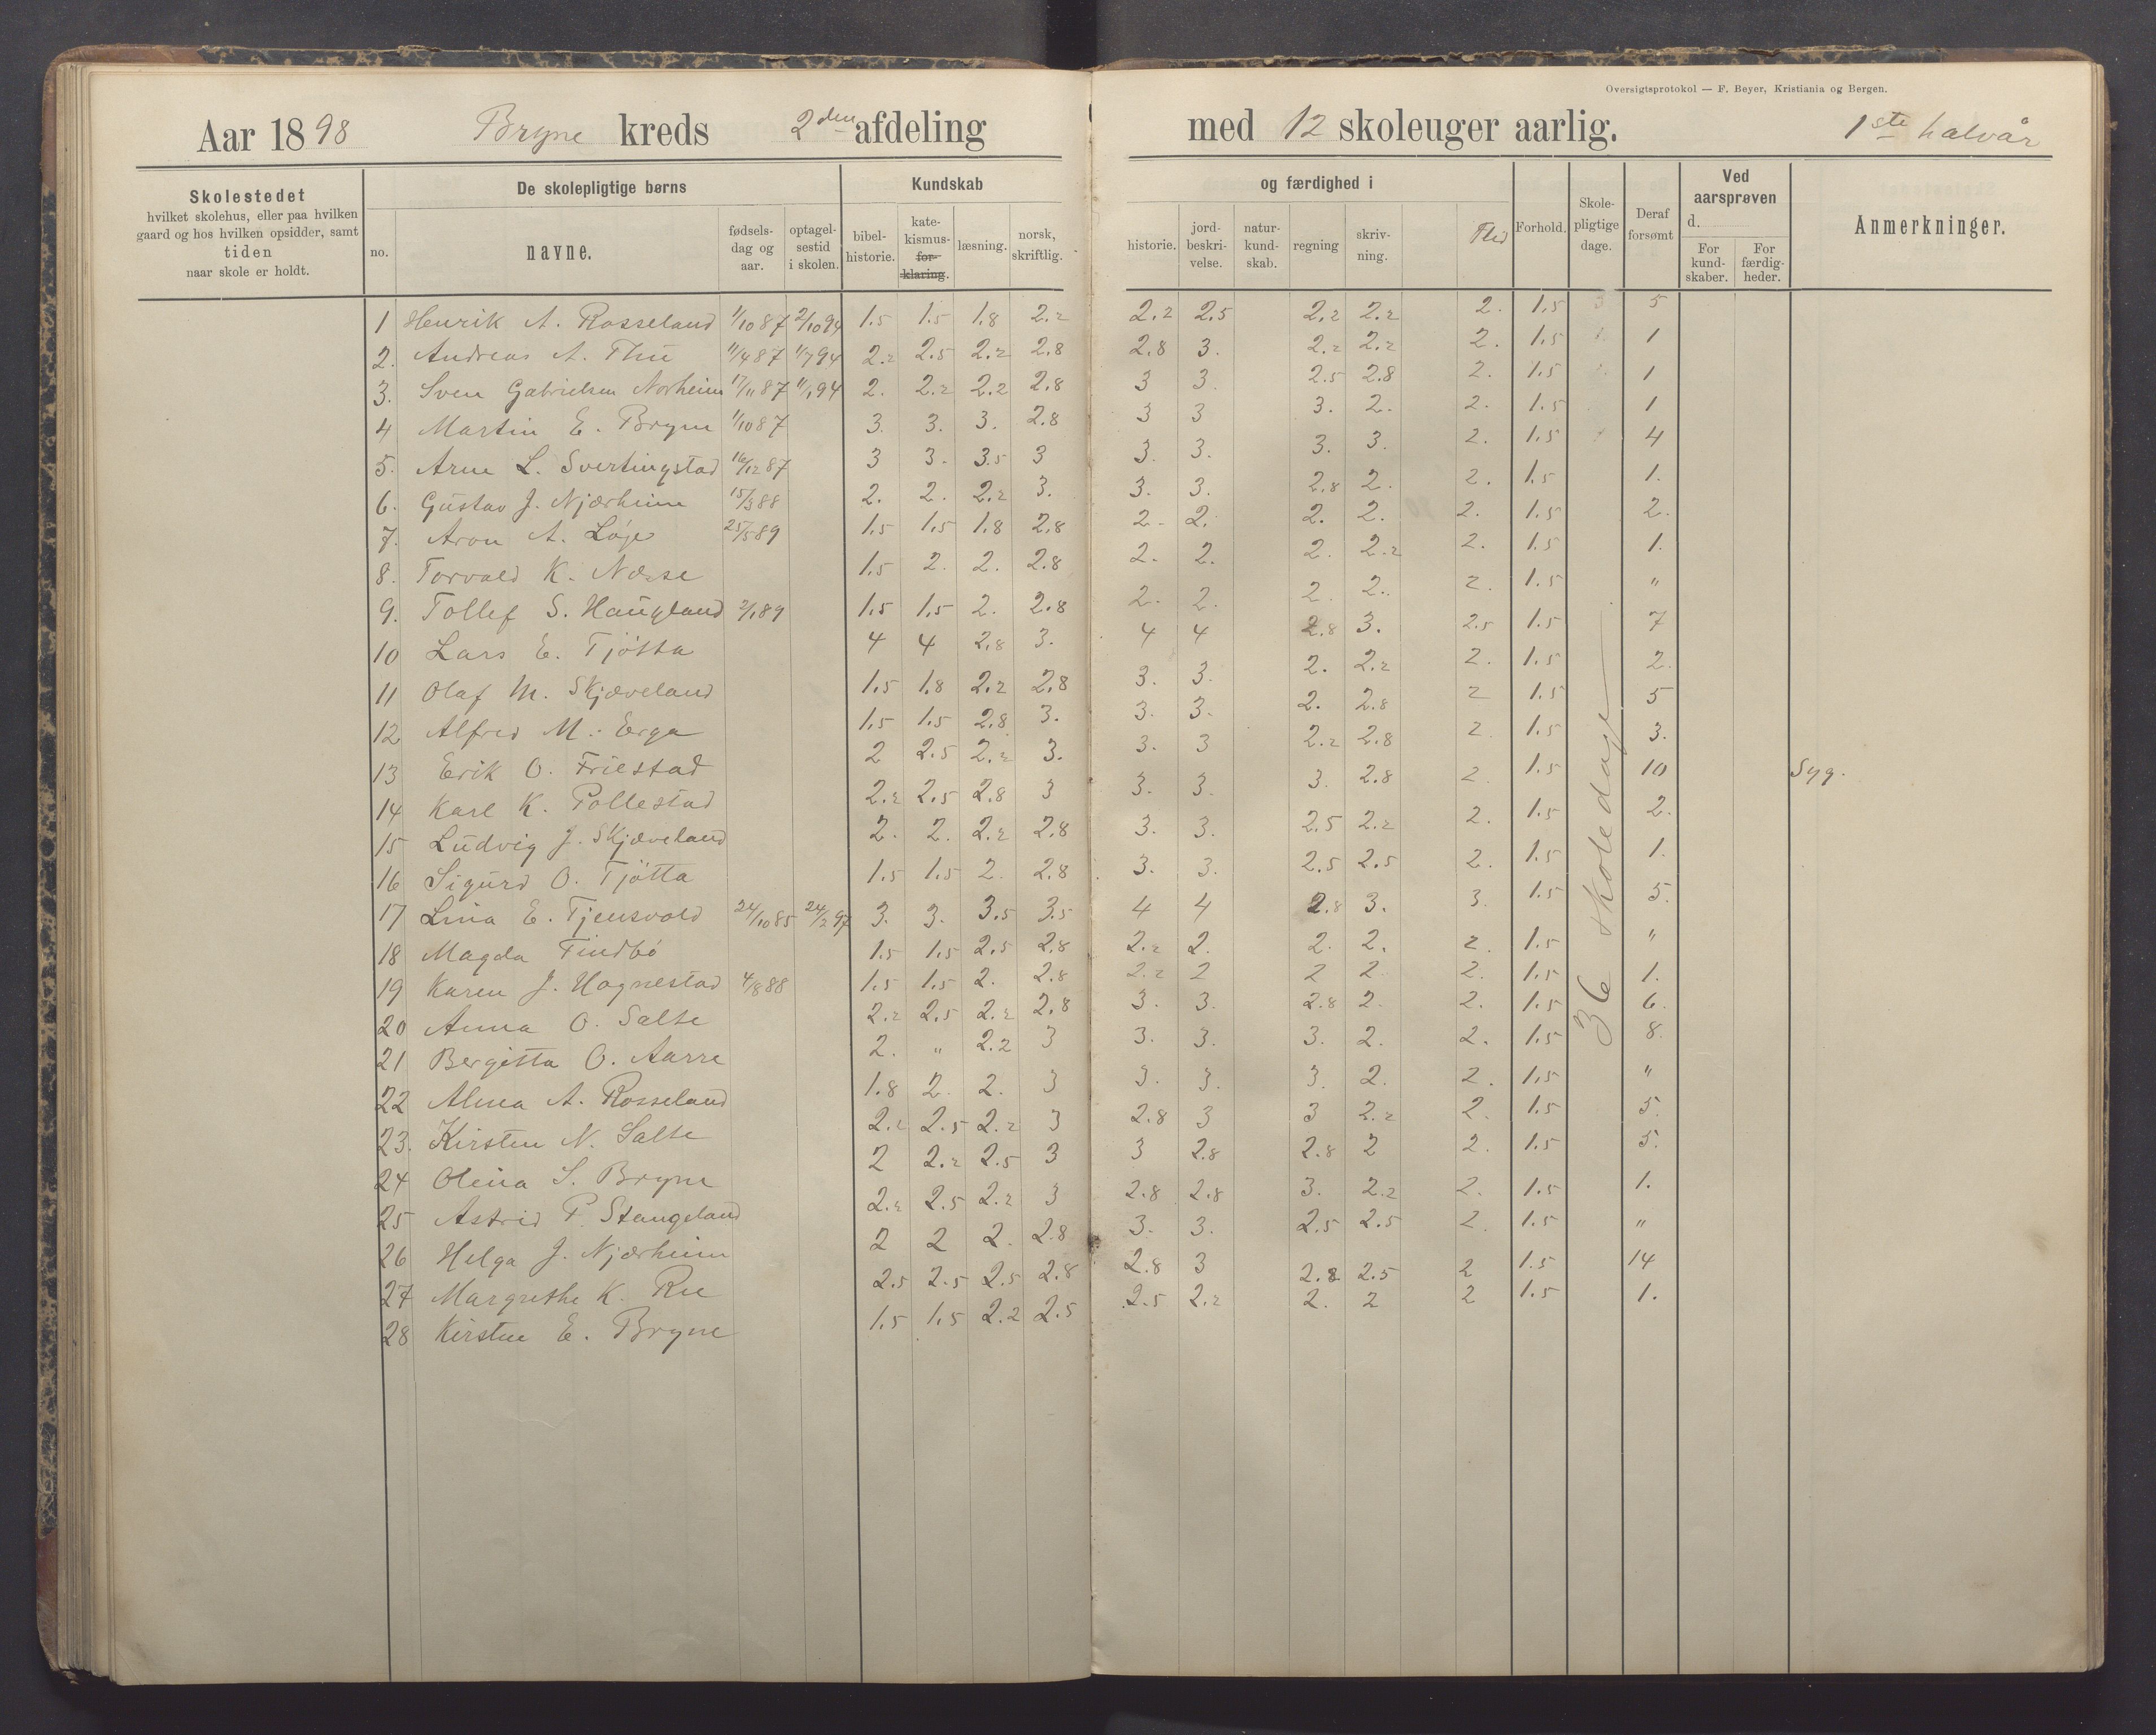 Oversigtsprotokol — F. Beyer, Kristiania og Bergen.
Aar 1898 Bryne kreds 2den afdeling med 12 skoleuger aarlig. 1ste halvår
Skolestedet
hvilket skolehus, eller paa hvilken
gaard og hos hvilken opsidder, samt
tiden
naar skole er holdt.
De skolepligtige børns
no.
navne.
fødsels-
dag og
aar.
optagel-
sestid
i skolen.
Kundskab
bibel-
historie.
kate-
kismus-
for-
klaring.
læsning.
norsk,
skriftlig.
og færdighed i
historie.
jord-
beskri-
velse.
natur-
kund-
skab.
regning
skriv-
ning.
Flid
Forhold.
Skole-
pligtige
dage.
Deraf
forsømt
Ved
aarsprøven
d.
For
kund-
skaber.
For
færdig-
heder.
Anmerkninger.
36 skoledage
1 Henrik A. Rosseland 1/10 87 2/10 94 1.5 1.5 1.8 2.2 2.2 2.5 2.2 2.2 2. 1.5 5
2. Andreas A. Thu 11/4 87 1/7 94 2.2 2.5 2.2 2.8 2.8 3. 2.2 2.2 2. 1.5 1
3. Sven Gabrielsen Norheim 17/11 87 11/1 94 2. 2.2 2.2 2.8 3 3. 2.5 2.8 2. 1.5 1
4 Martin E. Bryne 1/10 87 3. 3. 3. 2.8 3 3 3. 2. 2. 1.5 1
5. Arne L. Svertingstad 16/12 87 3 3. 3.5 3 3. 3. 3. 3. 2. 1.5 4
6. Gustav J. Njærheim 15/3 88 2. 2. 2.2 3. 3. 3. 2.8 2. 2. 1.5 1.
7. Aron A. Løge 25/5 89 1.5 1.5 1.8 2.8 2. 2. 2. 2. 2. 1.5 2.
8. Torvald K. Næsse 1.5 2. 2. 2.8 2. 2. 2. 2.2 2. 1.5 1.
9. Tollef S. Haugland 2/1 89 1.5 1.5 2. 2.8 2. 2. 2. 2. 2. 1.5 "
10 Lars E. Tjötta 4 4 2.8 3. 4 4 2.8 3. 2.5 1.5 7
11 Olaf M. Skjæveland 1.5 1.8 2.2 2.8 3. 3. 2. 2.2 2. 1.5 2.
12 Alfred M. Erga 1.5 1.5 2.8 3. 3. 3. 2. 2.8 2 1.5 5
13 Erik O. Friestad 2 2.5 2.2 3. 3. 3 2.2 2.8 2. 1.5 3.
14 Karl K. Pollestad 2.2 2.5 2.8 3 3. 3. 3. 2.8 2. 1.5 10 Syg.
15 Ludvig J. Skjæveland 2. 2. 2.2 2.8 3. 3. 2.5 2.2 2. 1.5 2.
16 Sigurd O. Tjötta 1.5 1.5 2. 2.8 3. 3. 2.5 2.5 2. 1.5 1.
17 Lina E. Tjensvold 24/10 85 24/2 97 3. 3. 3.5 3.5 4 4 2.8 3. 3. 1.5 5.
18 Magda Tindbø 1.5 1.5 2.5 2.8 2.2 2. 2. 2. 2. 1.5 "
19 Karen J. Hognestad 4/8 88 1.5 1.5 2. 2.8 2.2 2 2 2 2. 1.5 1.
20 Anna O. Salte 2.2 2.5 2.2 2.8 3. 3. 2.8 2. 2. 1.5 6.
21 Bergitta O. Aarre 2. " 2.2 3 3. 3. 3. 2. 2. 1.5 8.
22 Alma A. Rosseland 1.8 2. 2. 3 3. 3. 3. 2. 2. 1.5 "
23. Kirsten N. Salte 2.2 2.5 2.2 3 2.8 3 3 2.2 2. 1.5 5.
24 Olina S. Bryne 2 2.2 2.5 3 3 2.8 2.8 2 2. 1.5 5.
25 Astrid P. Stangeland 2.2 2.5 2.2 3 2.8 2.8 3. 2.2 2. 1.5 1.
26 Helga J. Njærheim 2 2 2. 2.8 3. 3. 2.5 2.5 2. 1.5 "
27 Margrethe K. Ree 2.5 2.5 2.5 2.8 2.8 3 2.2 2.5 2 1.5 14
28 Kirsten E. Bryne 1.5 1.5 2.2 2.5 2.5 2.2 2. 2 2 1.5 1.